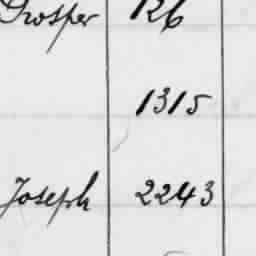 Prosper 126
1315
Joseph 2243